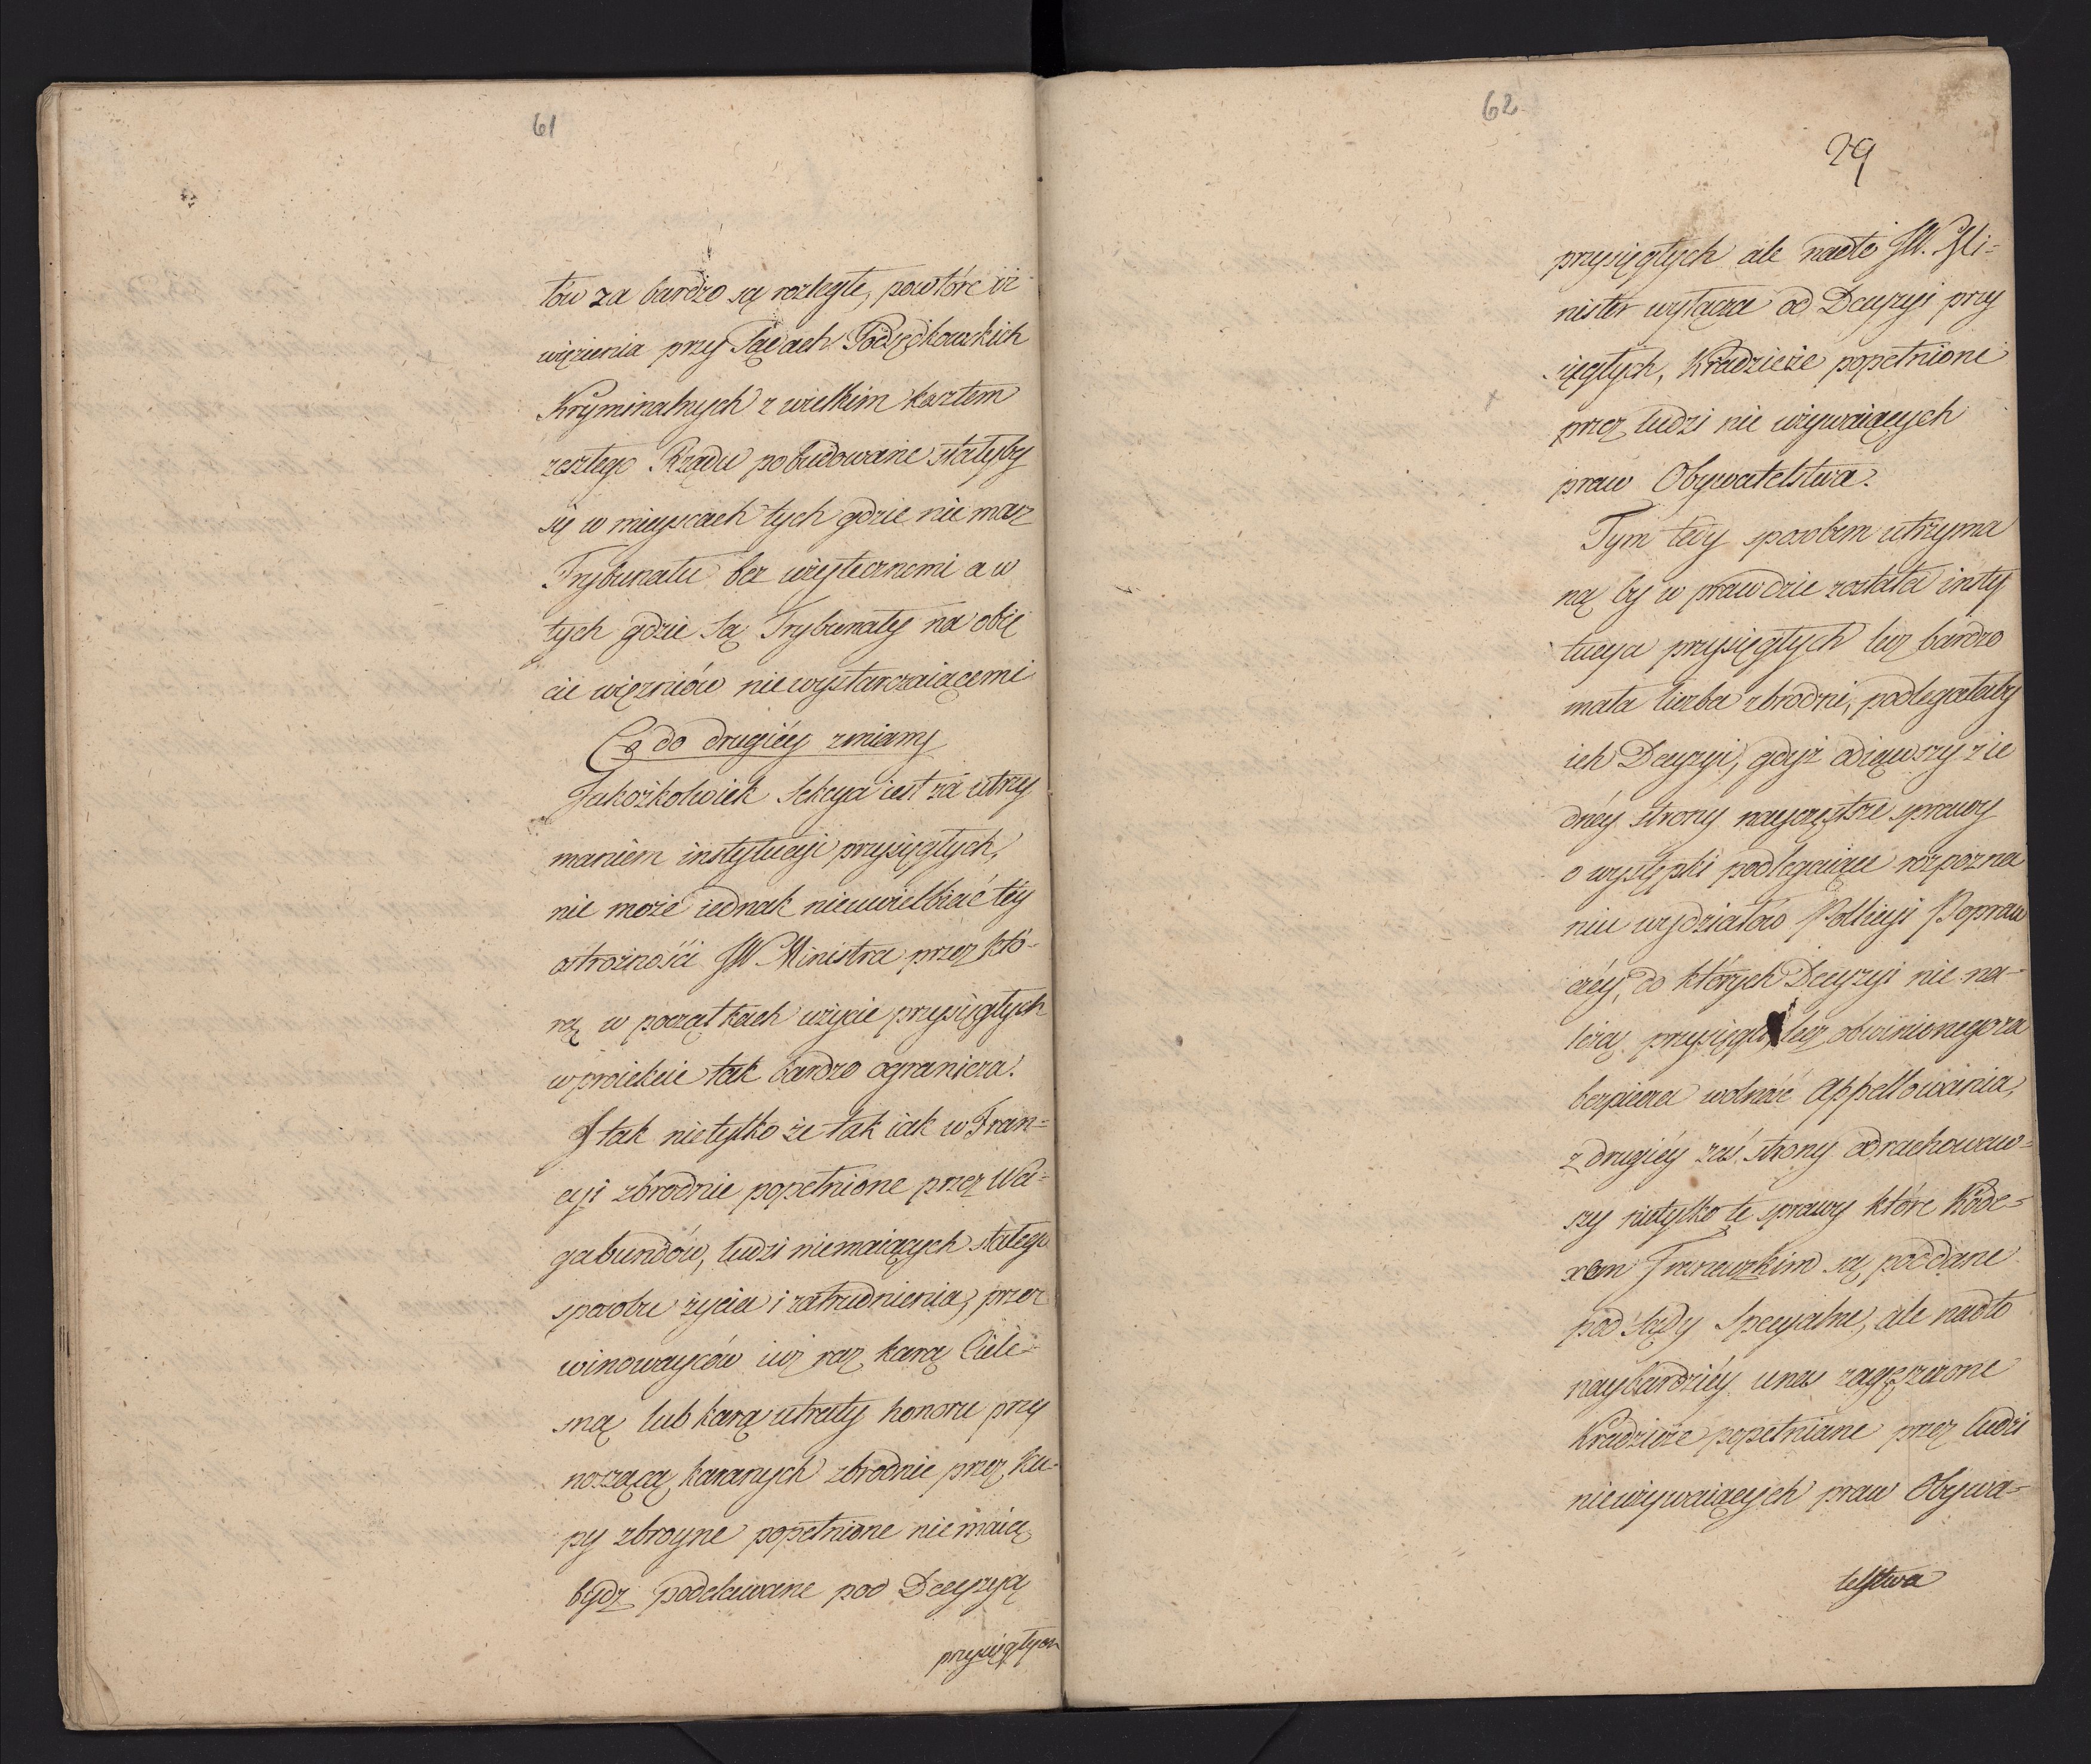 61
tów za bardzo są rozległe, powtóre iż
więzienia przy Sądach Podsędkowskich
Kryminalnych z wielkim kosztem
zeszłego Rządu pobudowane stałyby
się w mieyscach tych gdzie nie masz
Trybunału bez użytecznemi a w
tych gdzie są Trybunały na obię
cie więzniów niewystarczaiącemi
Co do drugiéy zmiany
Jakożkolwiek Sekcya iest za utrzy
maniem instytucyi przysięgłych,
nie może iednak nieuwielbiać téy
ostrożności JW Ministra przez któ-
rą w początkach użycie przysięgłych
w proiekcie tak bardzo ogranicza.
I tak nietylko że tak iak w Fran=
cyi zbrodnie popełnione przez Wa=
gabundów, ludzi niemaiących stałego
sposobu życia i zatrudnienia, przez
winowayców iuż raz karą Ciele=
sną lub karą utraty honoru przy
noszącą karanych zbrodnie przez ku-
py zbroyne popełnione nie maią
bydź poddawane pod Decyzyą
przysięgłych
62
29
przysięgłych ale nadto JW. Mi=
nister wyłącza od Decyzyi przy
sięgłych, Kradzieże popełnione
przez ludzi nie używaiących
praw Obywatelstwa.
Tym tedy sposobem utrzyma
ną by w prawdzie została insty
tucya przysięgłych lecz bardzo
mała liczba zbrodni, podlegałaby
ich Decyzyi, gdyż odiąwszy z ie
dnéy strony nayczęstsze sprawy
o występki podlegaiące rozpozna
niu wydziałów Policyi Popraw
czéy, do których Decyzyi nie na-
leżą przysięgli, lecz obwinionego za
bezpiecza wolność Appellowania,
z drugiéy zaś strony odrachowaw=
szy nietylko te sprawy które Kode=
xem Francuzkim są poddane
pod Sądy Specyalne, ale nadto
naybardziéy unas zagęszczone
Kradzieże popełniane przez ludzi
nieużywaiących praw Obywa=
telstwa